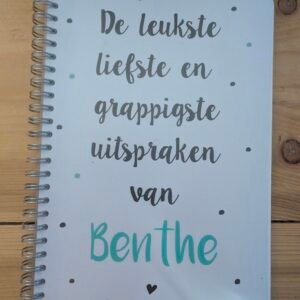 De leukste
liefste en
grappigste
uitspraken
van
Benthe